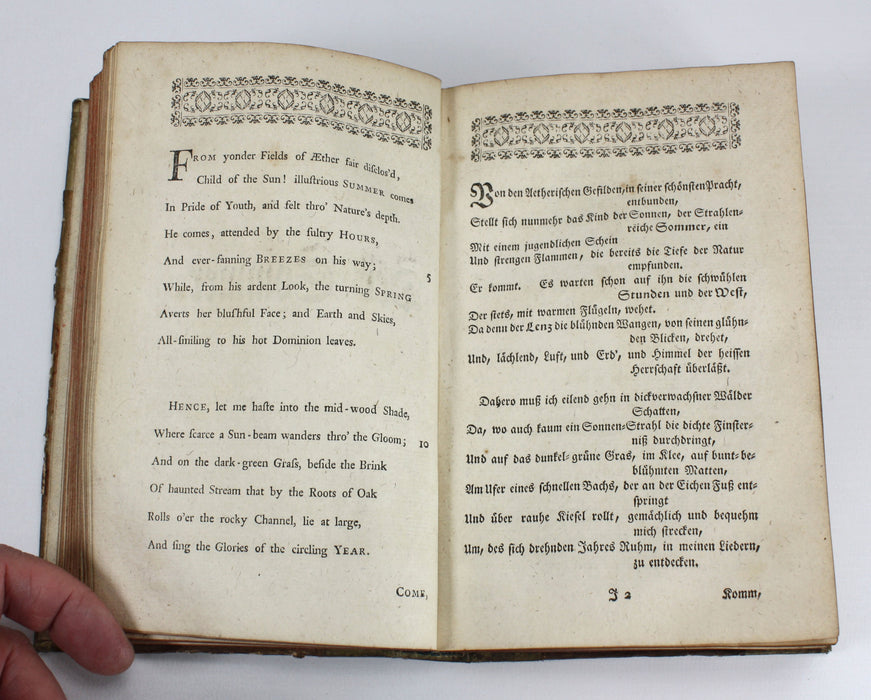 FROM yonder Fields of Æther fair diſclos'd,
Child of the Sun! illuſtrious SUMMER comes
In Pride of Youth, and felt thro' Nature's depth.
He comes, attended by the ſultry HOURS,
And ever-fanning BREEZES on his way; 5
While, from his ardent Look, the turning SPRING
Averts her bluſhful Face; and Earth and Skies,
All-ſmiling to his hot Dominion leaves.
HENCE, let me haſte into the mid-wood Shade,
Where ſcarce a Sun-beam wanders thro' the Gloom; 10
And on the dark-green Graſs, beſide the Brink
Of haunted Stream that by the Roots of Oak
Rolls o'er the rocky Channel, lie at large,
And ſing the Glories of the circling YEAR.
COME,
Von den Aetheriſchen Gefilden, in ſeiner ſchönſten Pracht,
entbunden,
Stellt ſich nunmehr das Kind der Sonnen, der Strahlen-
reiche Sommer, ein
Mit einem jugendlichen Schein
Und ſtrengen Flammen, die bereits die Tiefe der Natur
empfunden.
Er kommt. Es warten ſchon auf ihn die ſchwühlen
Stunden und der Weſt,
Der ſtets, mit warmen Flügeln, wehet.
Da denn der Lenz die blühnden Wangen, von ſeinen glühn-
den Blicken, drehet,
Und, lächlend, Luft, und Erd', und Himmel der heiſſen
Herrſchaft überläßt.
Dahero muß ich eilend gehn in dickverwachſner Wälder
Schatten,
Da, wo auch kaum ein Sonnen-Strahl die dichte Finſter-
niß durchdringt,
Und auf das dunkel-grüne Gras, im Klee, auf bunt-be-
blühmten Matten,
Am Ufer eines ſchnellen Bachs, der an der Eichen Fuß ent-
ſpringt
Und über rauhe Kieſel rollt, gemächlich und bequehm
mich ſtrecken,
Um, des ſich drehnden Jahres Ruhm, in meinen Liedern,
zu entdecken.
J 2 Komm,